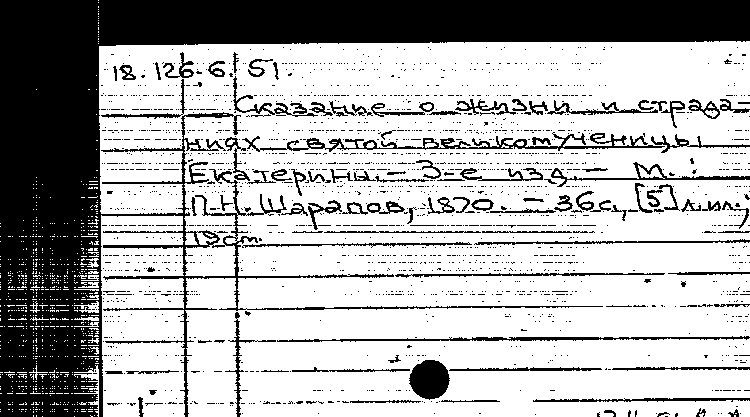 18.126.6.51.
Сказание о жизни и страда-
ниях святой великомученицы
Екатерины. - 3-е изд. - М. :
П.Н. Шарапов, 1870. - 36с., [5] л.ил.;
19см.